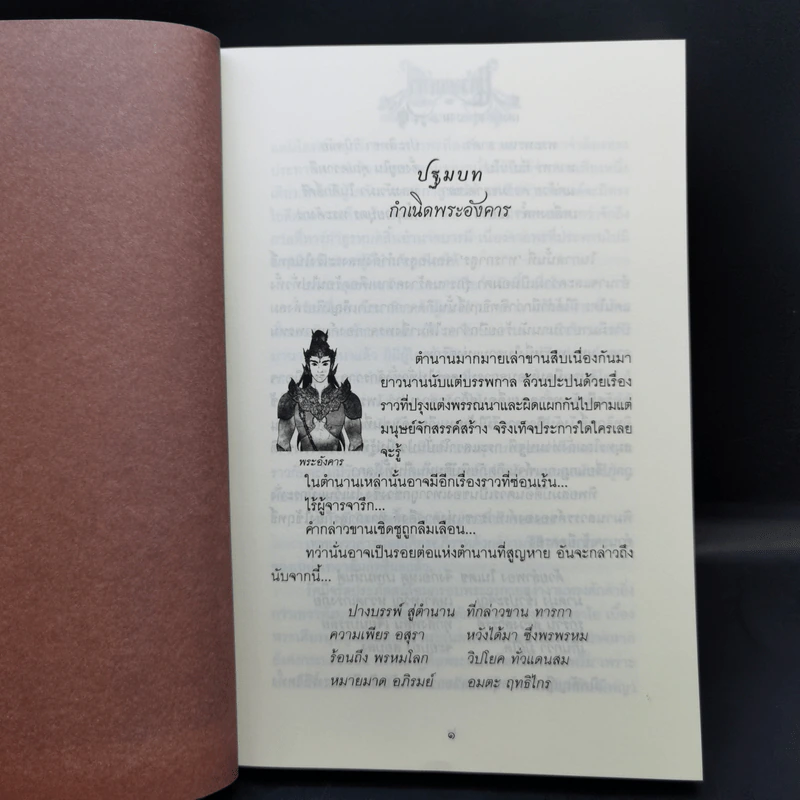 ปฐมบท
กำเนิดพระอังคาร
ตำนานมากมายเล่าขานสืบเนื่องกันมา
ยาวนานนับแต่บรรพกาล ล้วนปะปนด้วยเรื่อง
ราวที่ปรุงแต่งพรรณนาและผิดแผกกันไปตามแต่
มนุษย์จักสรรค์สร้าง จริงเท็จประการใดใครเลย
จะรู้
พระอังคาร
ในตำนานเหล่านั้นอาจมีอีกเรื่องราวที่ซ่อนเร้น...
ไร้ผู้จารจารึก...
คำกล่าวขานเชิดชูถูกลืมเลือน...
ทว่านั่นอาจเป็นรอยต่อแห่งตำนานที่สูญหาย อันจะกล่าวถึง
นับจากนี้...
ปางบรรพ์ สู่ตำนาน ที่กล่าวขาน ทารกา
ความเพียร อสุรา หวังได้มา ซึ่งพรพรหม
ร้อนถึง พรหมโลก วิปโยค ทั่วแดนสม
หมายมาด อภิรมย์ อมตะ ฤทธิไกร
๑